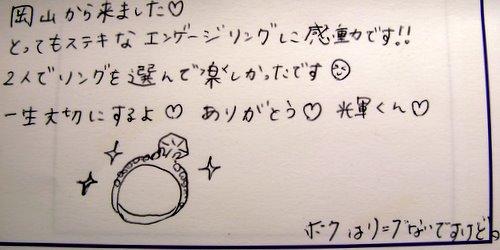 岡山から来ました♡
とってもステキなエンゲージリングに感動です!!
2人でリングを選んで楽しかったです☺
一生大切にするよ♡ ありがとう♡ 光輝くん♡
ボクはリ=ブないですけど